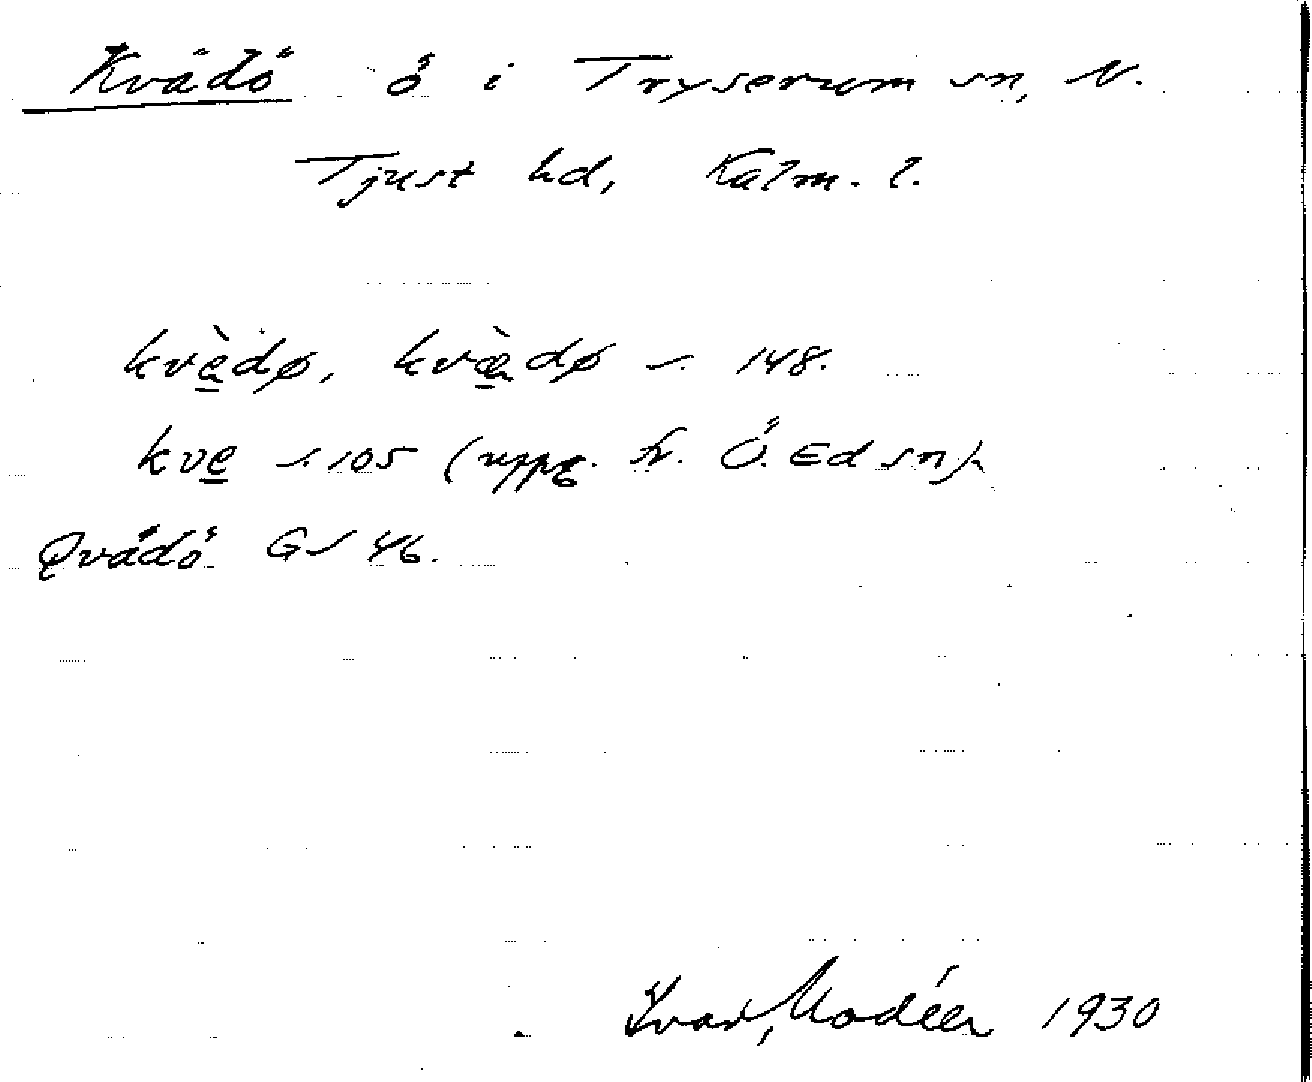 Kvädö ö i Tryserum sn, N.
Tjust hd, Kalm. l.
kvè̲dø, kvæ̲̀dø s. 148.
kve̲ s. 105 (uppg. fr. Ö. Ed sn).
Qvädö GS 46.
Ivar Modéer 1930